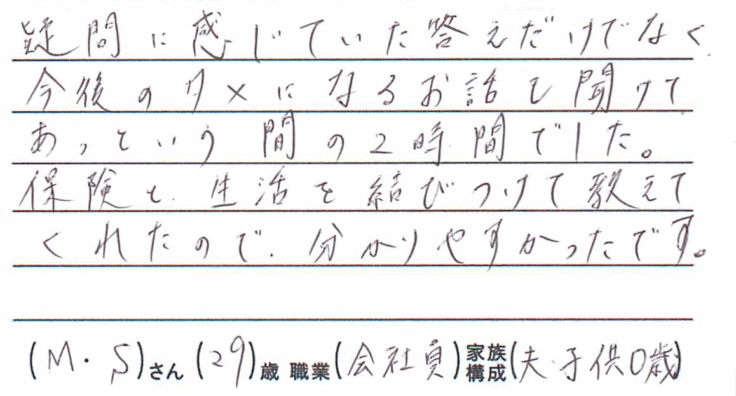 疑問に感じていた答えだけでなく
今後のタメになるお話も聞けて
あっという間の2時間でした。
保険と、生活を結びつけて教えて
くれたので、分かりやすかったです。
(M・S)さん (29)歳 職業(会社員)家族構成(夫・子供0歳)